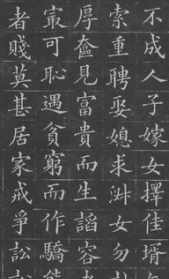 不成人子嫁女擇佳壻
索重聘娶媳求淑女勿
厚奩見富貴而生諂容
最可恥遇貧窮而作驕
者賤莫甚居家戒爭訟